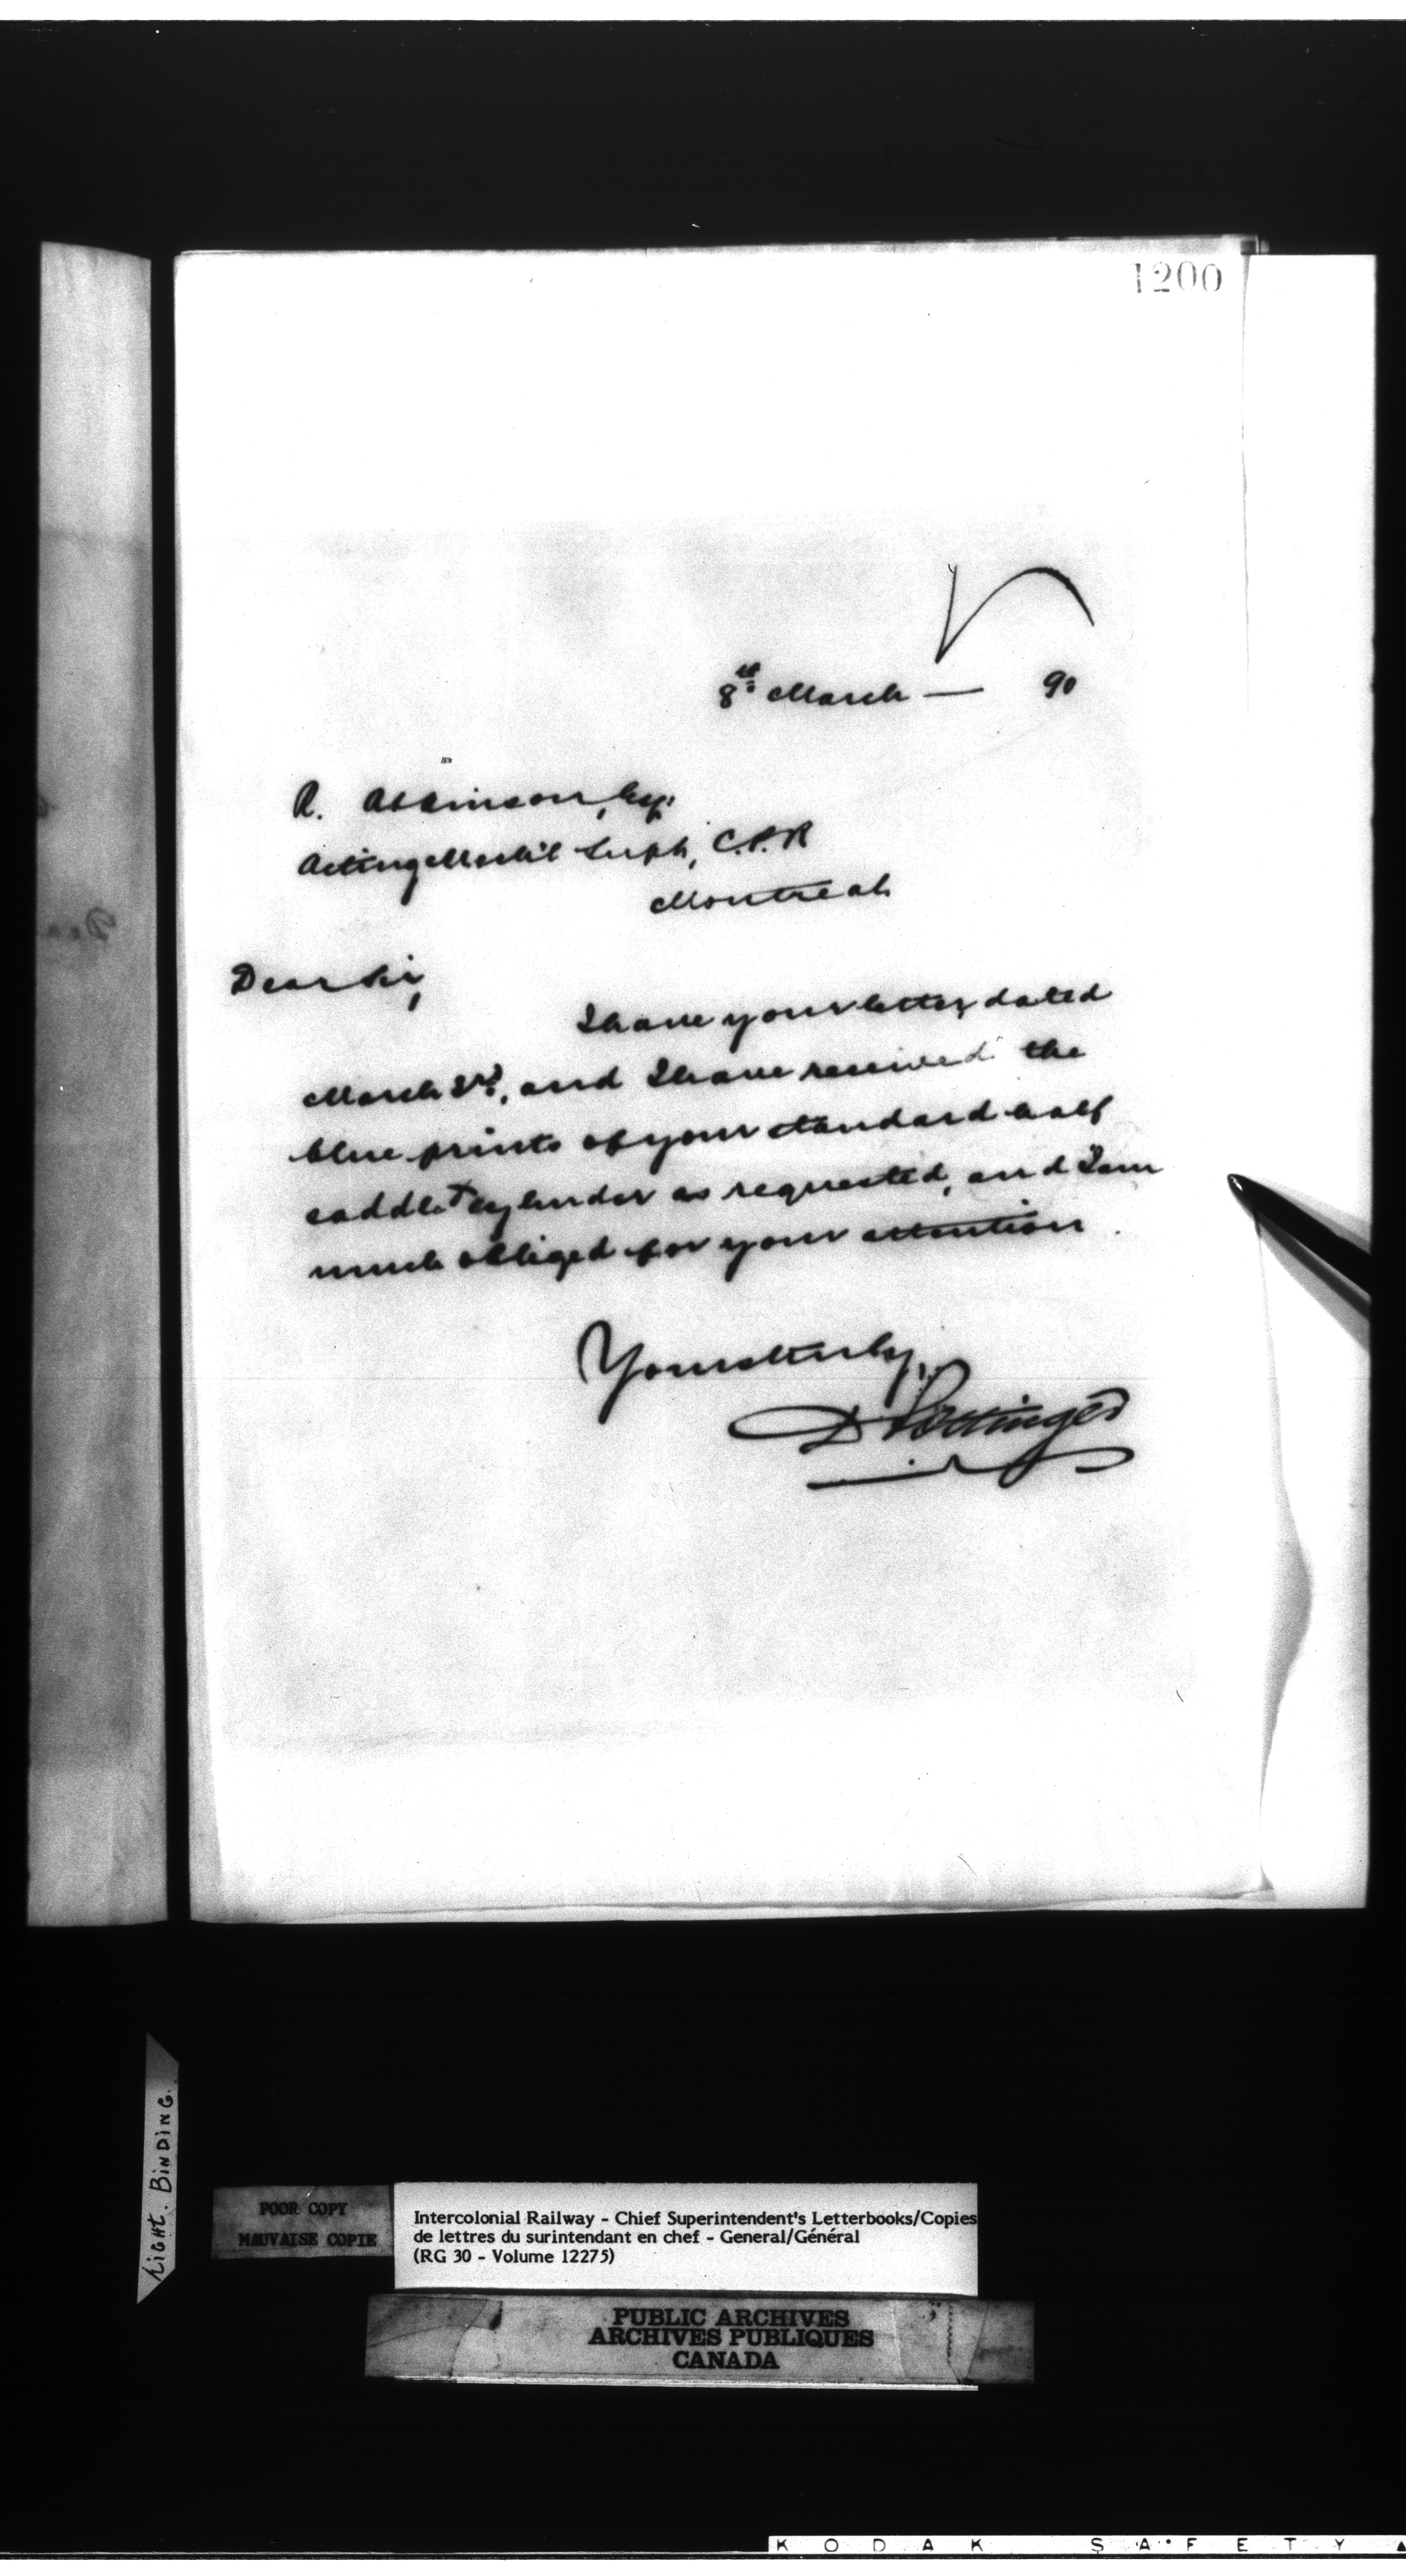 1200
8th March — 90
R. Atkinson, Esq:
Acting Mech'l Supt, C.P.R
Montreal
Dear Sir,
I have your letter dated
March 3rd, and I have received the
blue prints of your standard half
saddle & cylinder as requested, and I am
much obliged for your attention.
Yours truly,
D Pottinger
LIGHT. BINDING.
POOR COPY
MAUVAISE COPIE
Intercolonial Railway - Chief Superintendent's Letterbooks/Copies
de lettres du surintendant en chef - General/Général
(RG 30 - Volume 12275)
PUBLIC ARCHIVES
ARCHIVES PUBLIQUES
CANADA
KODAK SAFETY